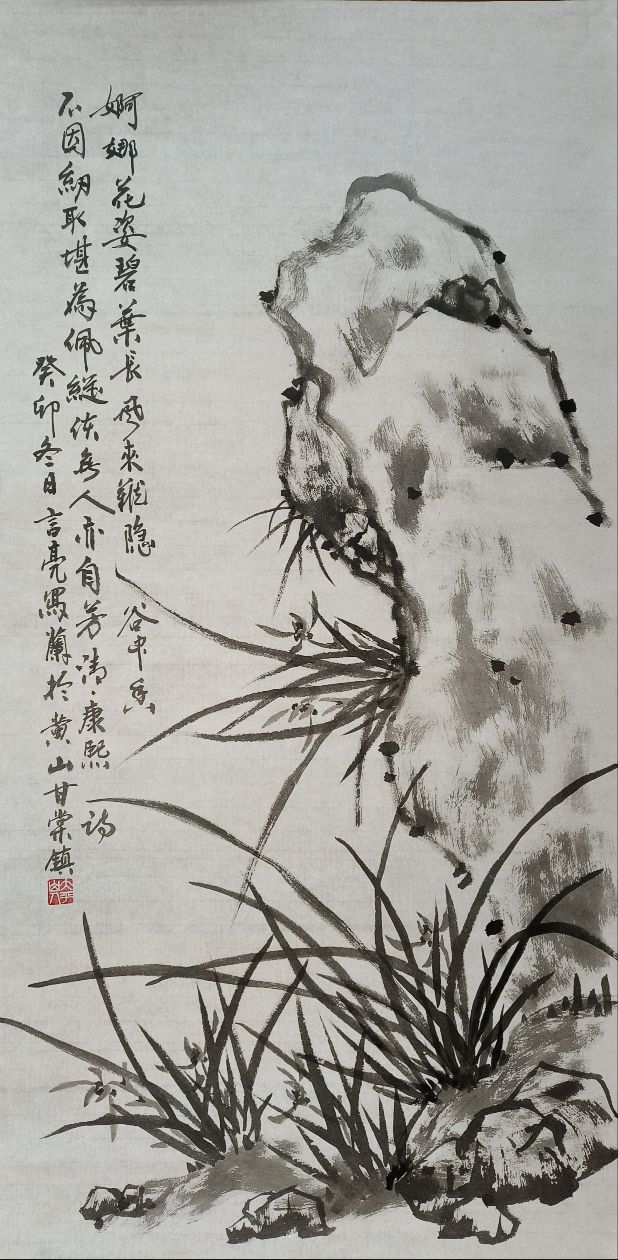 婀娜花姿碧葉長風來難隐谷中香
不因紉取堪為佩縱使無人亦自芳清·康熙詩
癸卯冬日言亮寫蘭於黄山甘棠鎮